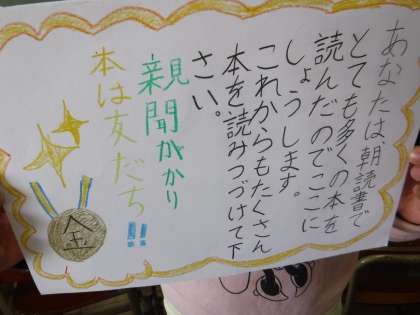 あなたは、朝読書で
とても多くの本を
読んだのでここに
しょうします。
これからもたくさん
本を読みつづけて下
さい。
親聞がかり
本は友だち!!
金